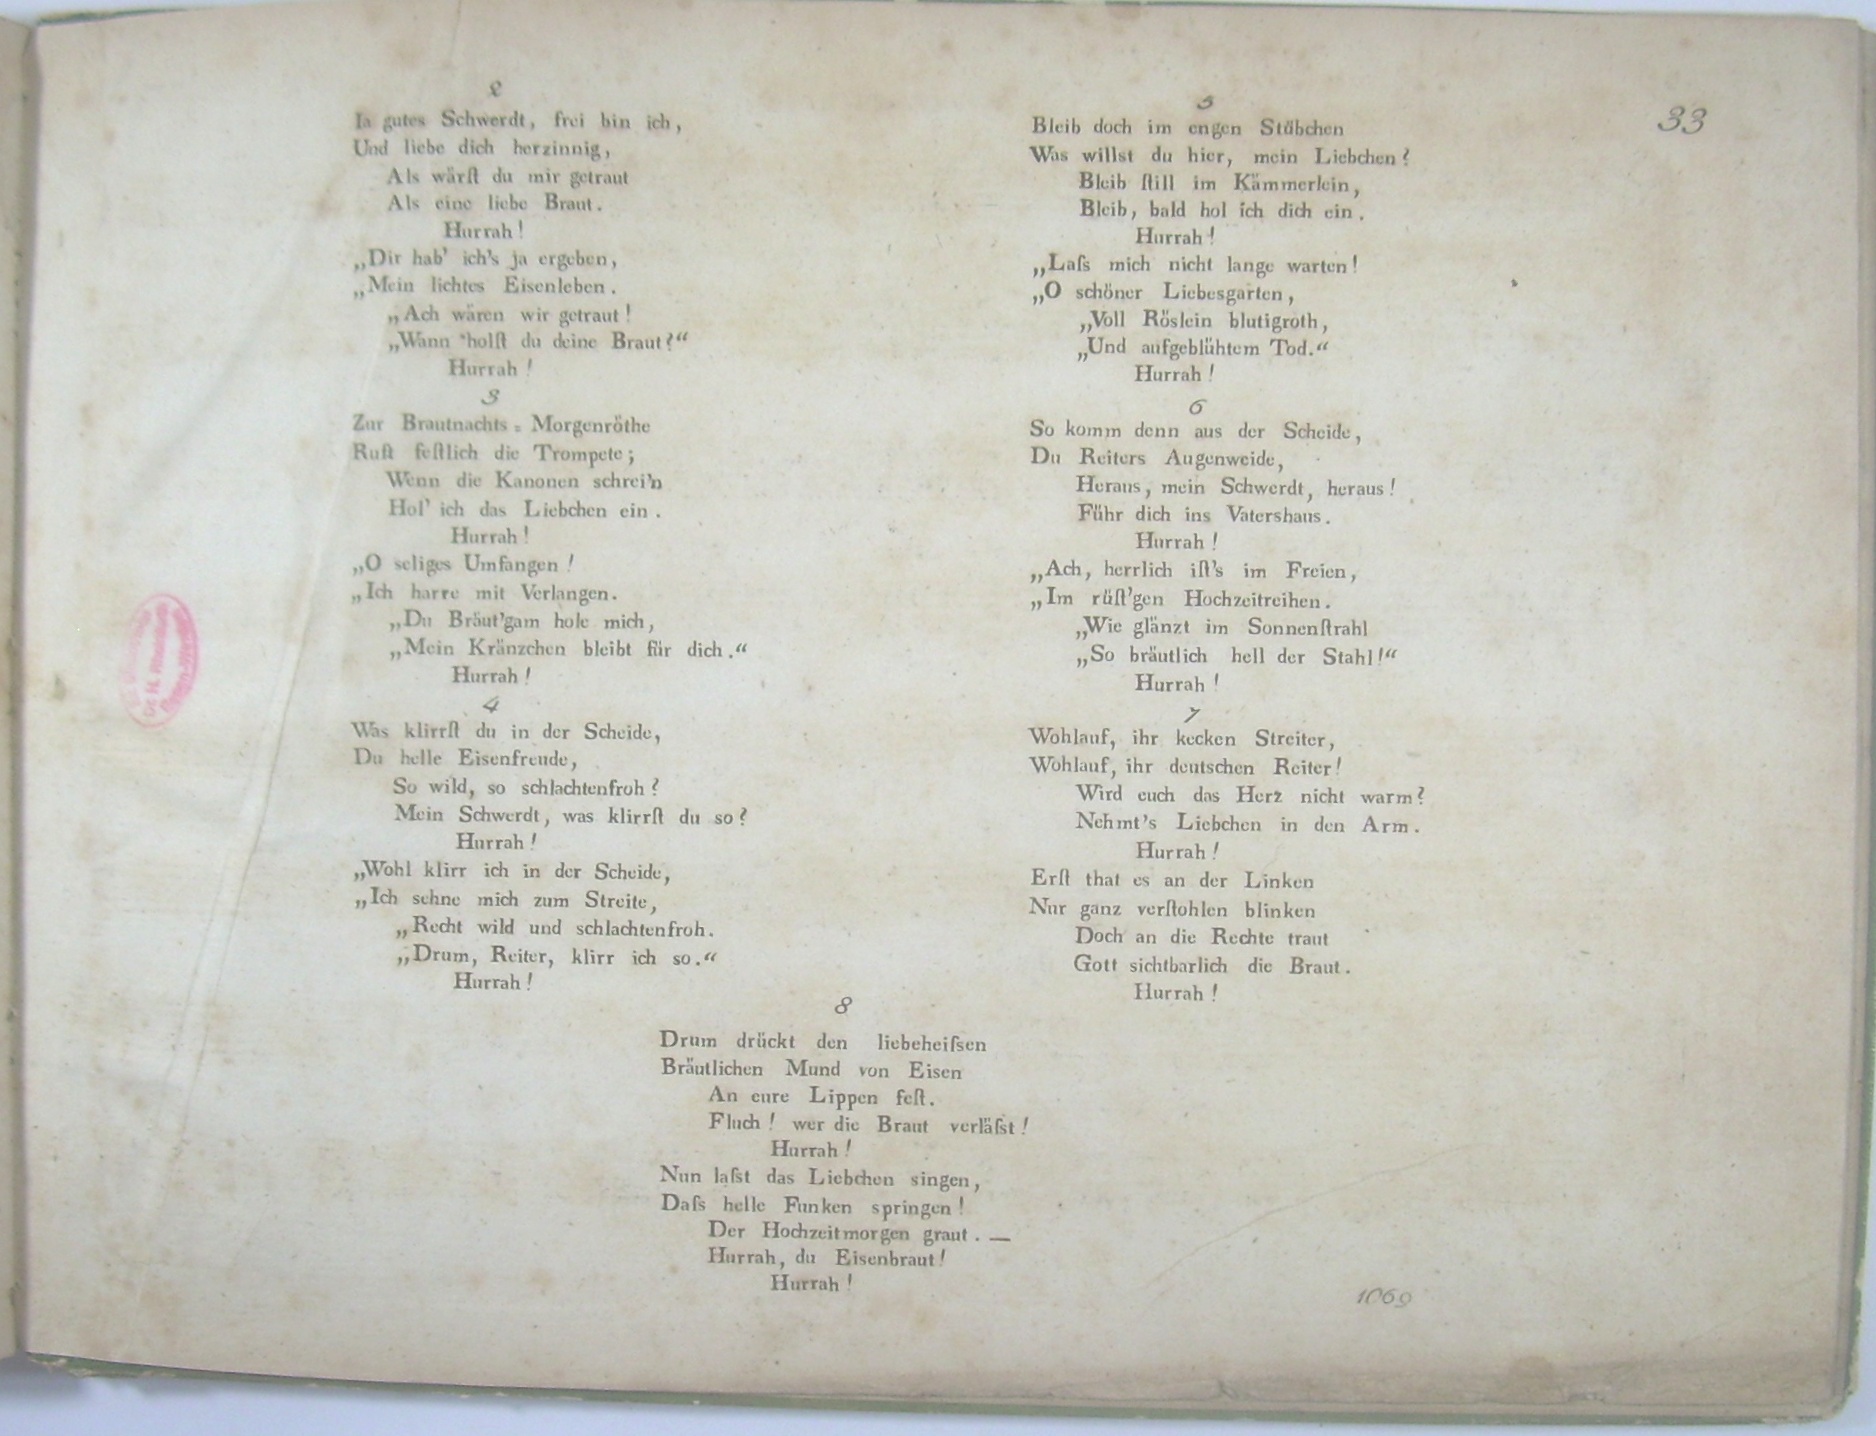 33
2
Ja gutes Schwerdt, frei bin ich,
Und liebe dich herzinnig,
Als wärſt du mir getraut
Als eine liebe Braut.
Hurrah!
„Dir hab' ich's ja ergeben,
„Mein lichtes Eisenleben.
„Ach wären wir getraut!
„Wann holſt du deine Braut?“
Hurrah!
3
Zur Brautnachts-Morgenröthe
Ruft feſtlich die Trompete;
Wenn die Kanonen schrei'n
Hol' ich das Liebchen ein.
Hurrah!
„O seliges Umfangen!
„Ich harre mit Verlangen.
„Du Bräut'gam hole mich,
„Mein Kränzchen bleibt für dich.“
Hurrah!
4
Was klirrſt du in der Scheide,
Du helle Eisenfreude,
So wild, so schlachtenfroh?
Mein Schwerdt, was klirrſt du so?
Hurrah!
„Wohl klirr ich in der Scheide,
„Ich sehne mich zum Streite,
„Recht wild und schlachtenfroh.
„Drum, Reiter, klirr ich so.“
Hurrah!
5
Bleib doch im engen Stübchen
Was willst du hier, mein Liebchen?
Bleib ſtill im Kämmerlein,
Bleib, bald hol ich dich ein.
Hurrah!
„Laſs mich nicht lange warten!
„O schöner Liebesgarten,
„Voll Röslein blutigroth,
„Und aufgeblühtem Tod.“
Hurrah!
6
So komm denn aus der Scheide,
Du Reiters Augenweide,
Heraus, mein Schwerdt, heraus!
Führ dich ins Vatershaus.
Hurrah!
„Ach, herrlich iſt's im Freien,
„Im rüſt'gen Hochzeitreihen.
„Wie glänzt im Sonnenſtrahl
„So bräutlich hell der Stahl!“
Hurrah!
7
Wohlauf, ihr kecken Streiter,
Wohlauf, ihr deutschen Reiter!
Wird euch das Herz nicht warm?
Nehmt's Liebchen in den Arm.
Hurrah!
Erſt that es an der Linken
Nur ganz verſtohlen blinken
Doch an die Rechte traut
Gott sichtbarlich die Braut.
Hurrah!
8
Drum drückt den liebeheiſsen
Bräutlichen Mund von Eisen
An eure Lippen feſt.
Fluch! wer die Braut verläſst!
Hurrah!
Nun laſst das Liebchen singen,
Daſs helle Funken springen!
Der Hochzeitmorgen graut. —
Hurrah, du Eisenbraut!
Hurrah!
1069